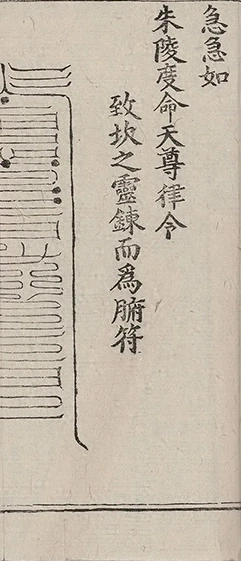 急急如
朱陵度命天尊律令
致坎之靈鍊而為腑符